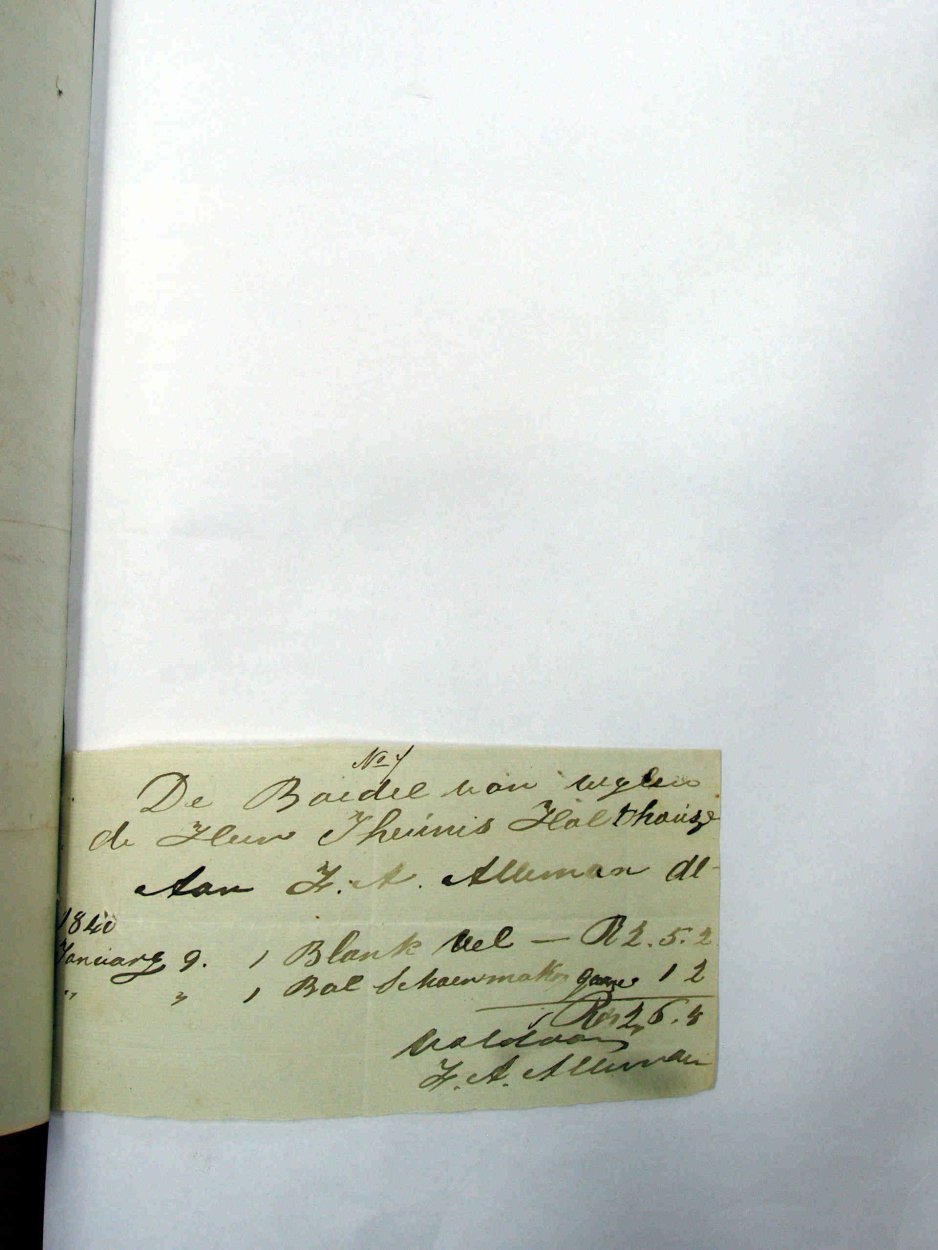 No 7
De Boedel van wylen
de Heer Theunis Holtshouse
Aan F. A. Alleman dr
1840
January 9. 1 Blank Vel — R 2. 5. 2
" " 1 Bal Schoenmakers gaare 1 2
Rs 2, 6. 4
Voldaan
F. A. Alleman